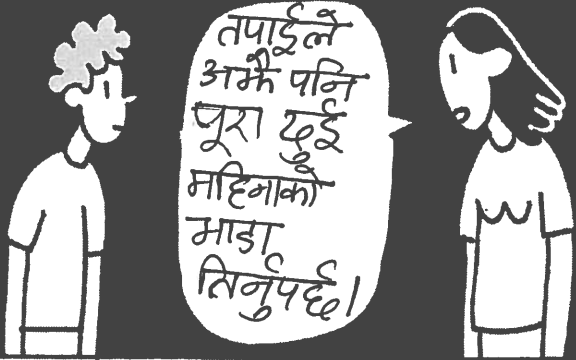 तपाईले
अझै पनि
पूरा दुई
महिनाको
भाडा
तिर्नुपर्छ।